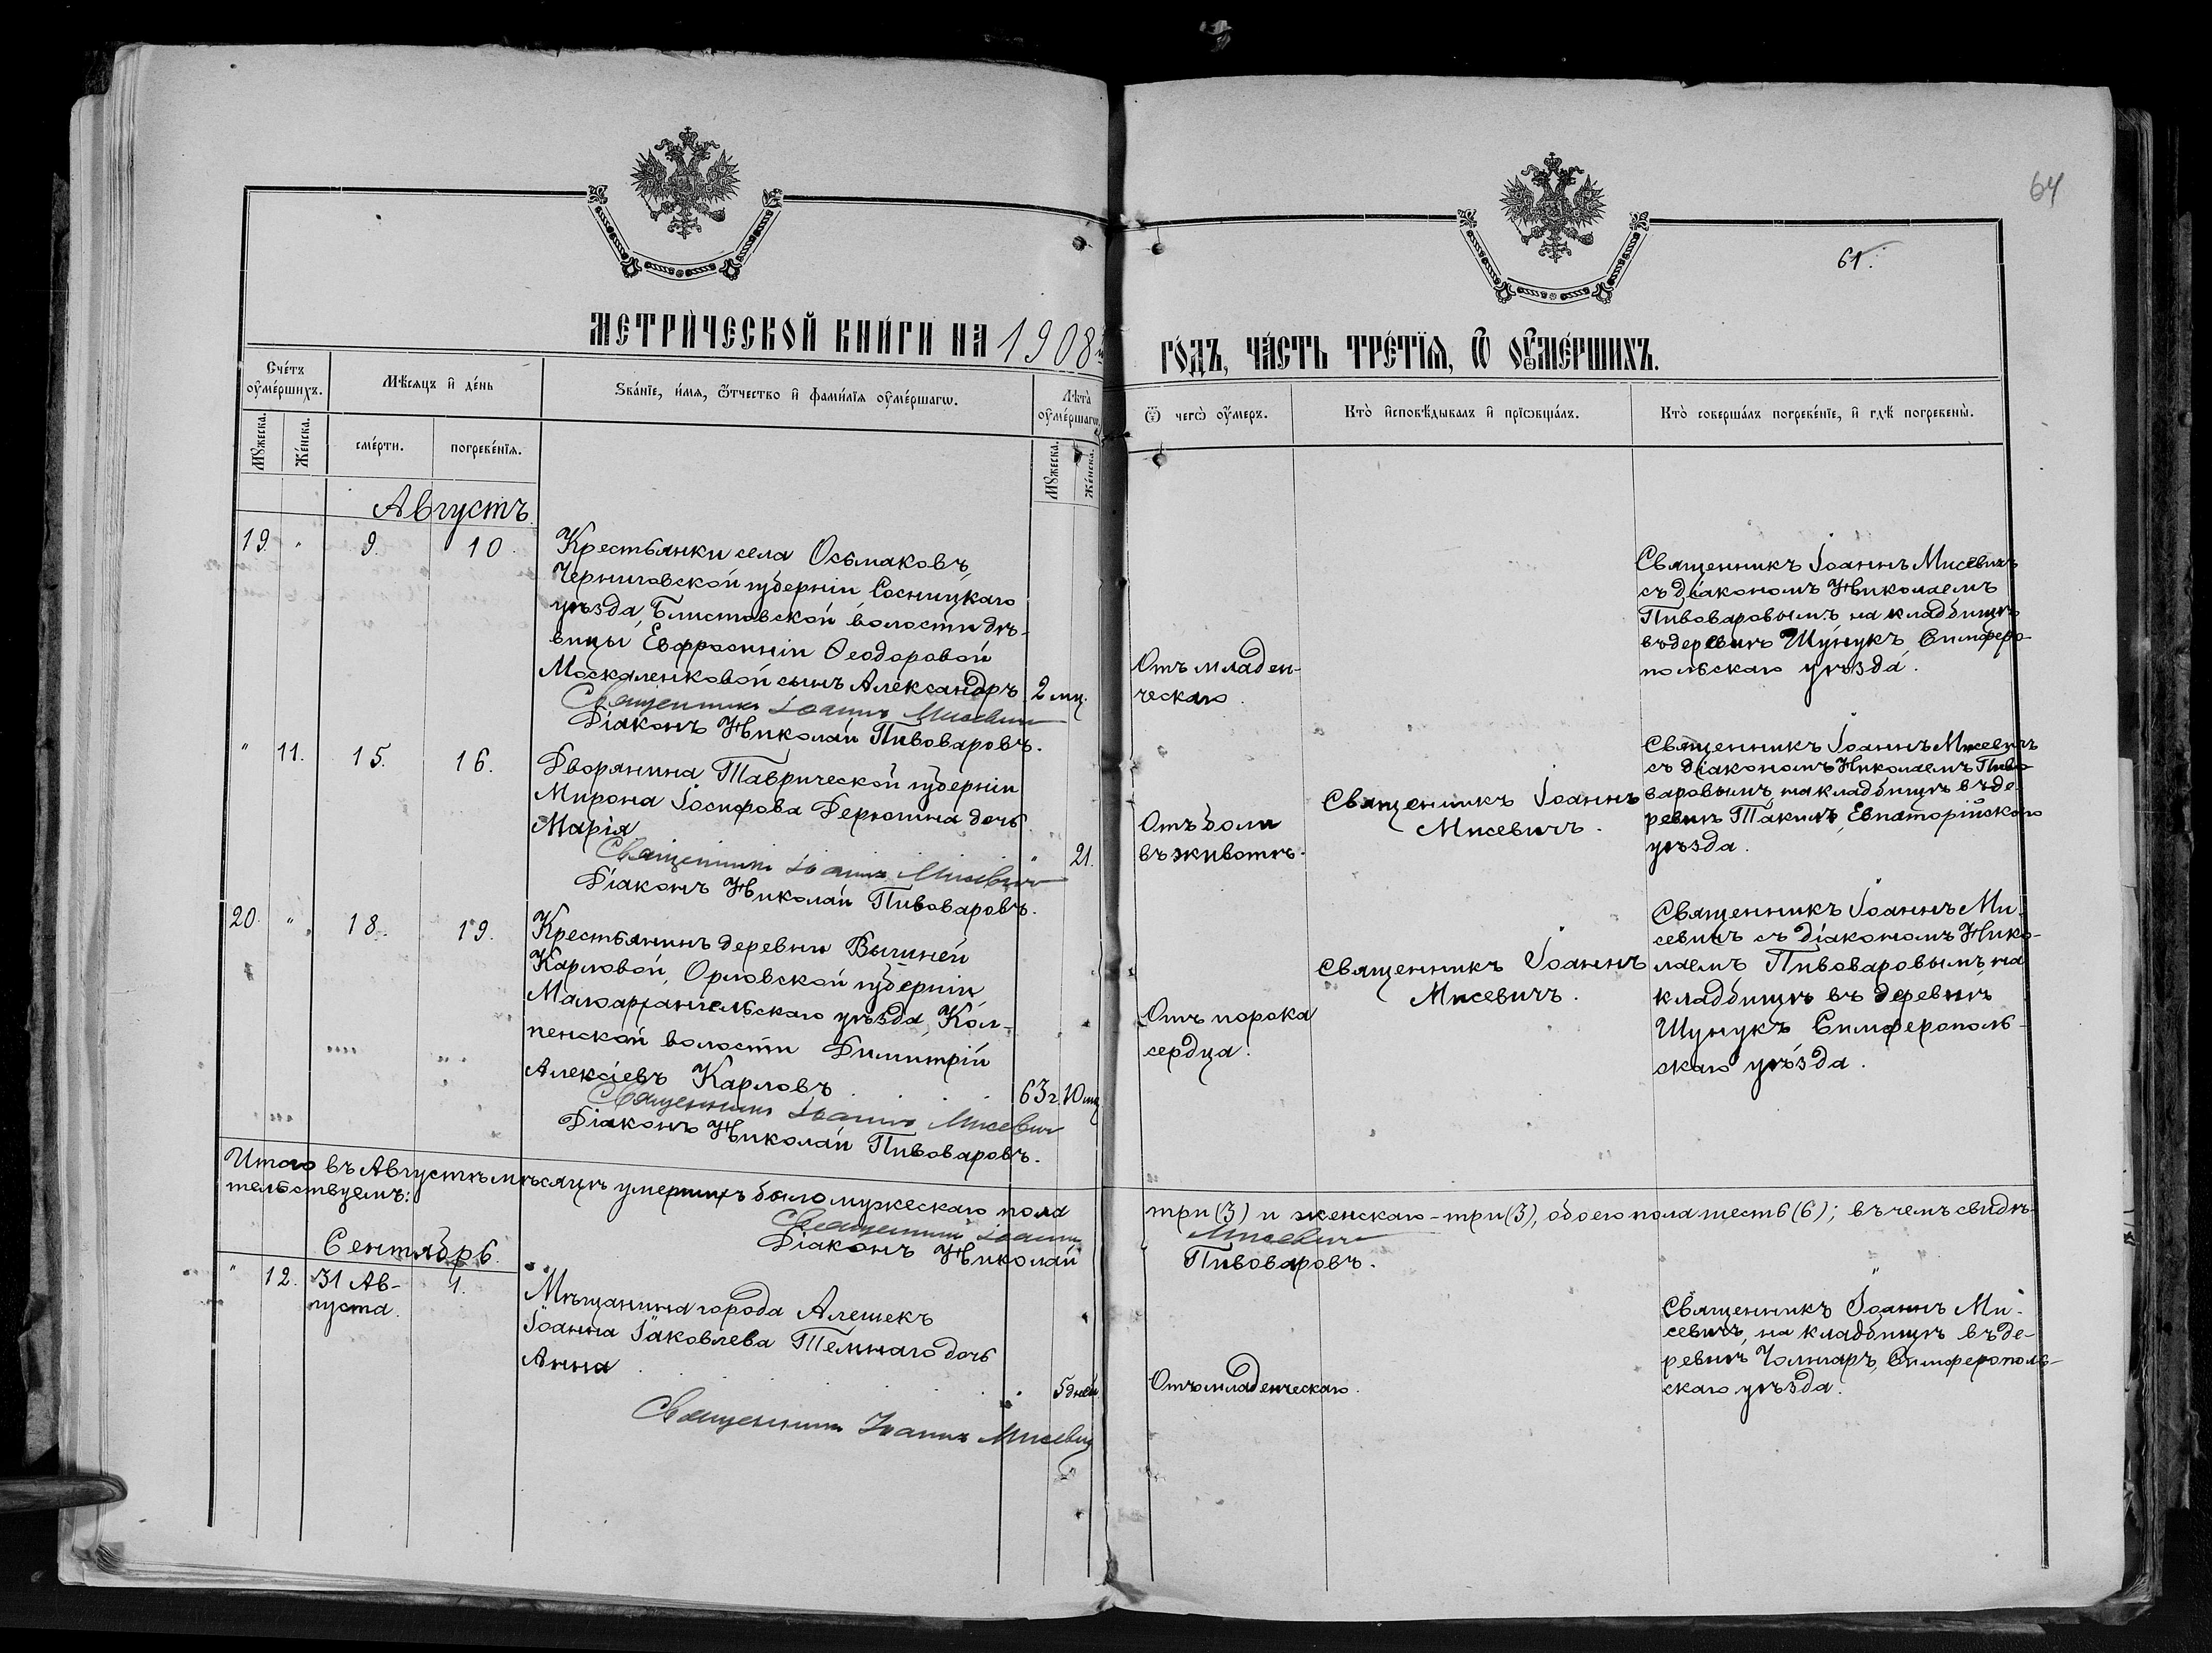 64
61.
МЕТРИ́ЧЕСКОЙ КНИ́ГИ НА 1908й
ГО́ДЪ, ЧА́СТЬ ТРЕ́ТЇѦ, Ѿ ОУ҆МЕ́РШИХЪ.
Сче́тъ оу҆ме́ршихъ.
Мѣсѧцъ и҆ де́нь
Ѕва́нїе, и҆́мѧ, ѻ҆́тчество и҆ фами́лїѧ оу҆ме́ршагѡ.
Лѣта̀ оу҆ме́ршагѡ.
Ѿ чегѡ̀ оу҆́меръ.
Кто̀ и҆сповѣ́дывалъ и҆ прїѡбща́лъ.
Кто̀ соверша́лъ погребе́нїе, и҆ гдѣ̀ погребены̀.
Мꙋ́жеска.
Же́нска.
сме́рти.
погребе́нїѧ.
Мꙋ́жеска.
Же́нска.
Августъ.
19. " 9. 10.
Крестьянки села Осьмаковъ,
Черниговской губерніи Сосницкаго
уѣзда, Блистовской волости дѣ-
вицы Евфросиніи Ѳеодоровой
Москаленковой сынъ Александръ
2 мц.
Священникъ Іоаннъ Мисевичъ
Діаконъ Николай Пивоваровъ.
Отъ младен-
ческаго.
Священникъ Іоаннъ Мисевичъ
съ діакономъ Николаемъ
Пивоваровымъ на кладбищѣ
въ деревнѣ Шунукъ, Симферо-
польскаго уѣзда.
" 11. 15. 16.
Дворянина Таврической губерніи
Мирона Іосифова Дерюгина дочь
Марія
" 21.
Священникъ Іоаннъ Мисевичъ
Діаконъ Николай Пивоваровъ.
Отъ боли
въ животѣ.
Священникъ Іоаннъ
Мисевичъ.
Священникъ Іоаннъ Мисевичъ
съ діакономъ Николаемъ Пиво
варовымъ на кладбищѣ въ де
ревнѣ Такилъ, Евпаторійскаго
уѣзда.
20. " 18. 19.
Крестьянинъ деревни
Карловой, Орловской губерніи,
Малоархангельскаго уѣзда, Кол-
пенской волости Димитрій
Алексіевъ Карловъ
63 г. 10 мц
Священникъ Іоаннъ Мисевичъ
Діаконъ Николай Пивоваровъ.
Отъ порока
сердца.
Священникъ Іоаннъ
Мисевичъ.
Священникъ Іоаннъ Ми-
севичъ съ діакономъ Нико-
лаемъ Пивоваровымъ, на
кладбищѣ въ деревнѣ
Шунукъ Симферополь-
скаго уѣзда.
Итого въ Августѣ мѣсяцѣ умершихъ было мужескаго пола
три (3) и женскаго - три (3), обоего пола шесть (6); въ чемъ свидѣ-
тельствуемъ:
Священникъ Іоаннъ Мисевичъ
Діаконъ Николай Пивоваровъ.
Сентябрь.
" 12. 31 Ав-
густа. 1.
Мѣщанина города Алешекъ
Іоанна Іаковлева Темнаго дочь
Анна.
" 5 дней
Священникъ Іоаннъ Мисевичъ
Отъ младенческаго.
Священникъ Іоаннъ Ми-
севичъ, на кладбищѣ въ де-
ревнѣ Чолмаръ, Симферополь-
скаго уѣзда.